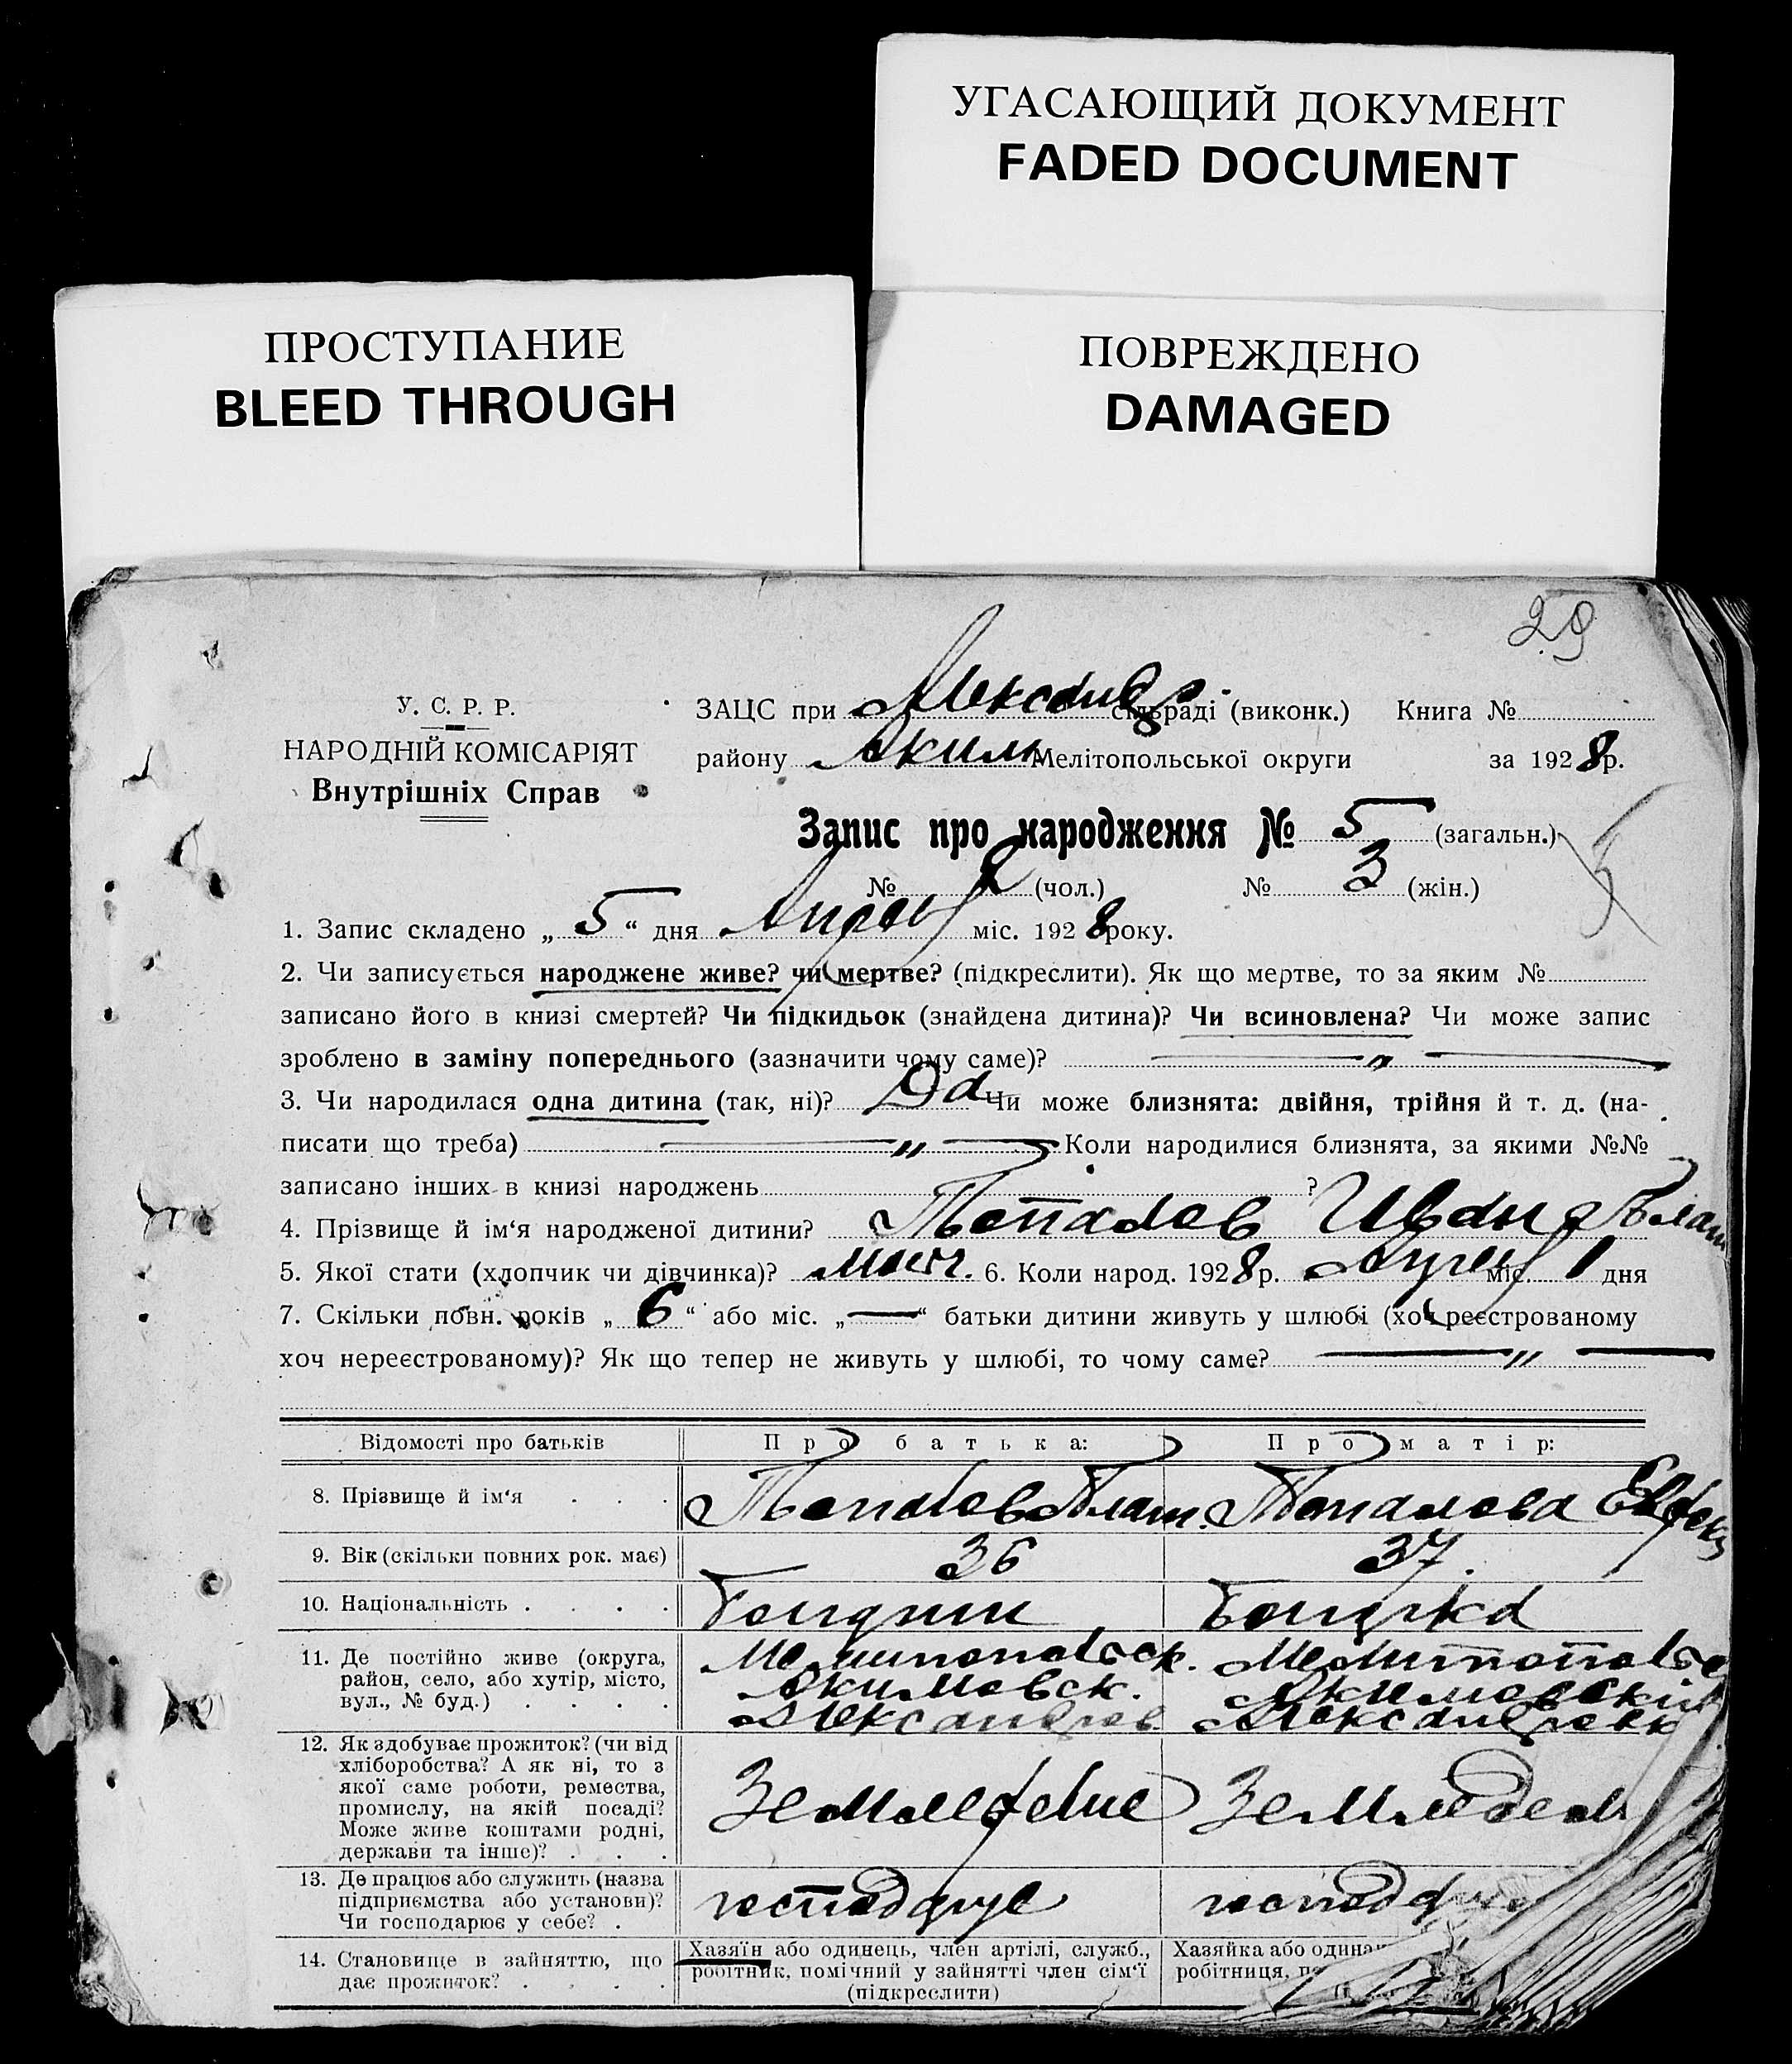 УГАСАЮЩИЙ ДОКУМЕНТ
FADED DOCUMENT
ПРОСТУПАНИЕ
BLEED THROUGH
ПОВРЕЖДЕНО
DAMAGED
29
У. С. Р. Р.
НАРОДНІЙ КОМІСАРІЯТ
Внутрішніх Справ
ЗАЦС при Александр. сільраді (виконк.) Книга №
району Аким Мелітопольської округи за 1928 р.
Запис про народження № 5 (загальн.)
№ (чол.) № 3 (жін.)
1. Запис складено „ 5 “ дня міс. 1928 року.
2. Чи записується народжене живе? чи мертве? (підкреслити). Як що мертве, то за яким №
записано його в книзі смертей? Чи підкидьок (знайдена дитина)? Чи всиновлена? Чи може запис
зроблено в заміну попереднього (зазначити чому саме)? — „ —
3. Чи народилася одна дитина (так, ні)? Да Чи може близнята: двійня, трійня й т. д. (на-
писати що треба) — „ — Коли народилися близнята, за якими №№
записано інших в книзі народжень ?
4. Прізвище й ім‘я народженої дитини? Топалов Иван Плат
5. Якої стати (хлопчик чи дівчинка)? 6. Коли народ. 1928 р. міс. 1 дня
7. Скільки повн. років „ 6 “ або міс. „ — “ батьки дитини живуть у шлюбі (хоч реєстрованому
хоч нереєстрованому)? Як що тепер не живуть у шлюбі, то чому саме? — „ —
Відомості про батьків Про батька: Про матір:
8. Прізвище й ім‘я . . . Топалов Плат. Топалова
9. Вік (скільки повних рок. має) 36 37
10. Національність . . . .
11. Де постійно живе (округа,
район, село, або хутір, місто,
вул., № буд.) . . . .
Мелитопольск. Мелитополь
Акимовск. Акимовский
Александров Александровк
12. Як здобуває прожиток? (чи від
хліборобства? А як ні, то з
якої саме роботи, ремества,
промислу, на якій посаді?
Може живе коштами родні,
держави та інше)? . . .
Земледелие Земледел
13. Де працює або служить (назва
підприємства або установи)?
Чи господарює у себе? .
14. Становище в зайняттю, що
дає прожиток? . . . .
Хазяїн або одинець, член артілі, служб.,
робітник, помічний у зайнятті член сім‘ї
(підкреслити)
Хазяйка або
робітниця,